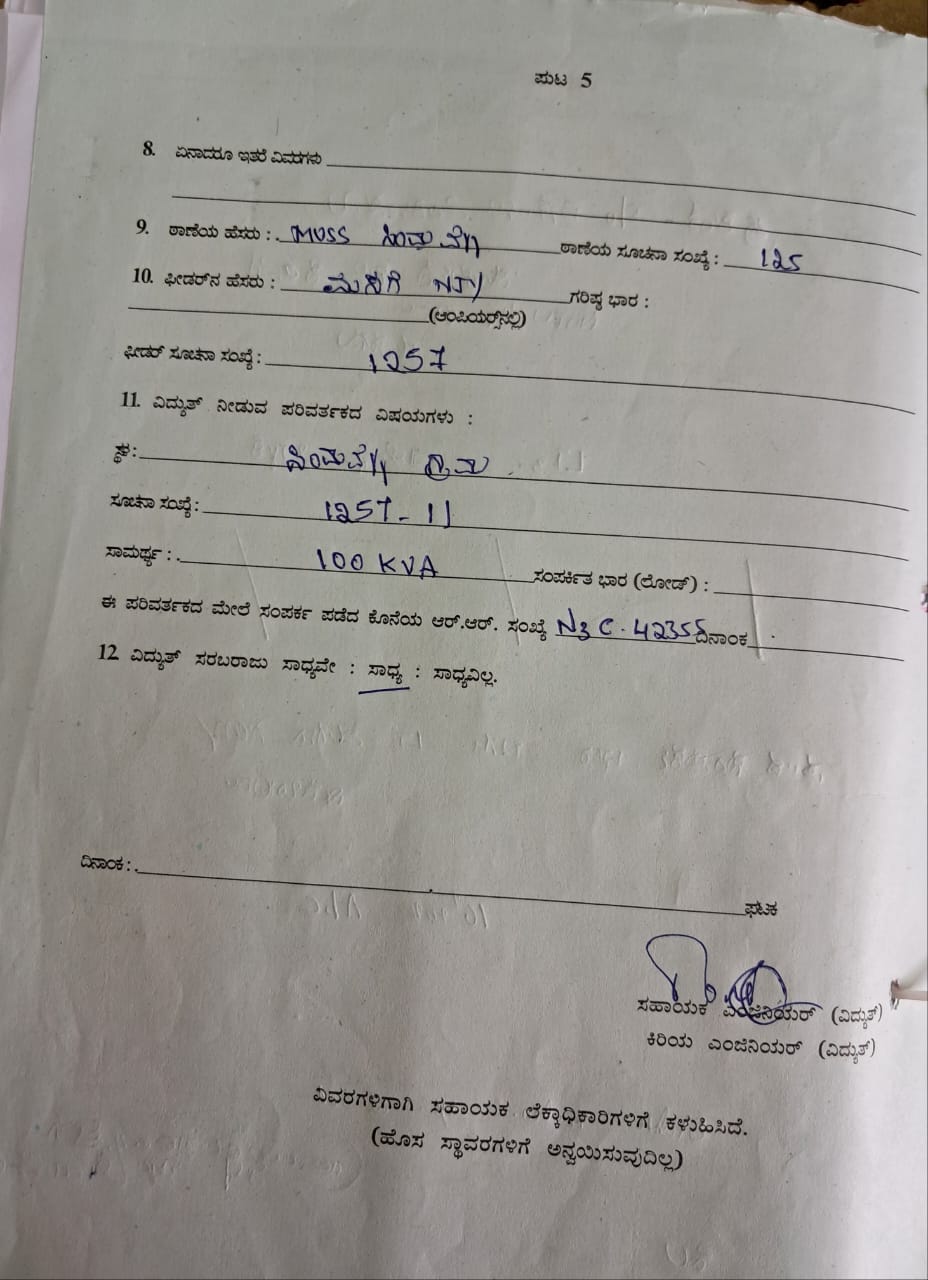 ಪುಟ 5
8. ಏನಾದರೂ ಇತರೆ ವಿವರಗಳು
9. ಠಾಣೆಯ ಹೆಸರು : MUSS ಠಾಣೆಯ ಸೂಚನಾ ಸಂಖ್ಯೆ : 125
10. ಫೀಡರ್‌ನ ಹೆಸರು : NJY ಗರಿಷ್ಠ ಭಾರ :
(ಆಂಪಿಯರ್‍ಸ್‌ನಲ್ಲಿ)
ಫೀಡರ್ ಸೂಚನಾ ಸಂಖ್ಯೆ : 1257
11. ವಿದ್ಯುತ್ ನೀಡುವ ಪರಿವರ್ತಕದ ವಿಷಯಗಳು :
ಸ್ಥಳ : ಗ್ರಾಮ
ಸೂಚನಾ ಸಂಖ್ಯೆ : 1257-11
ಸಾಮರ್ಥ್ಯ : 100 KVA ಸಂಪರ್ಕಿತ ಭಾರ (ಲೋಡ್) :
ಈ ಪರಿವರ್ತಕದ ಮೇಲೆ ಸಂಪರ್ಕ ಪಡೆದ ಕೊನೆಯ ಆರ್.ಆರ್. ಸಂಖ್ಯೆ 42355 ದಿನಾಂಕ
12 ವಿದ್ಯುತ್ ಸರಬರಾಜು ಸಾಧ್ಯವೇ : ಸಾಧ್ಯ : ಸಾಧ್ಯವಿಲ್ಲ.
ದಿನಾಂಕ : ಘಟಕ
ಸಹಾಯಕ ಎಂಜಿನಿಯರ್ (ವಿದ್ಯುತ್)
ಕಿರಿಯ ಎಂಜಿನಿಯರ್ (ವಿದ್ಯುತ್)
ವಿವರಗಳಿಗಾಗಿ ಸಹಾಯಕ ಲೆಕ್ಕಾಧಿಕಾರಿಗಳಿಗೆ ಕಳುಹಿಸಿದೆ.
(ಹೊಸ ಸ್ಥಾವರಗಳಿಗೆ ಅನ್ವಯಿಸುವುದಿಲ್ಲ)